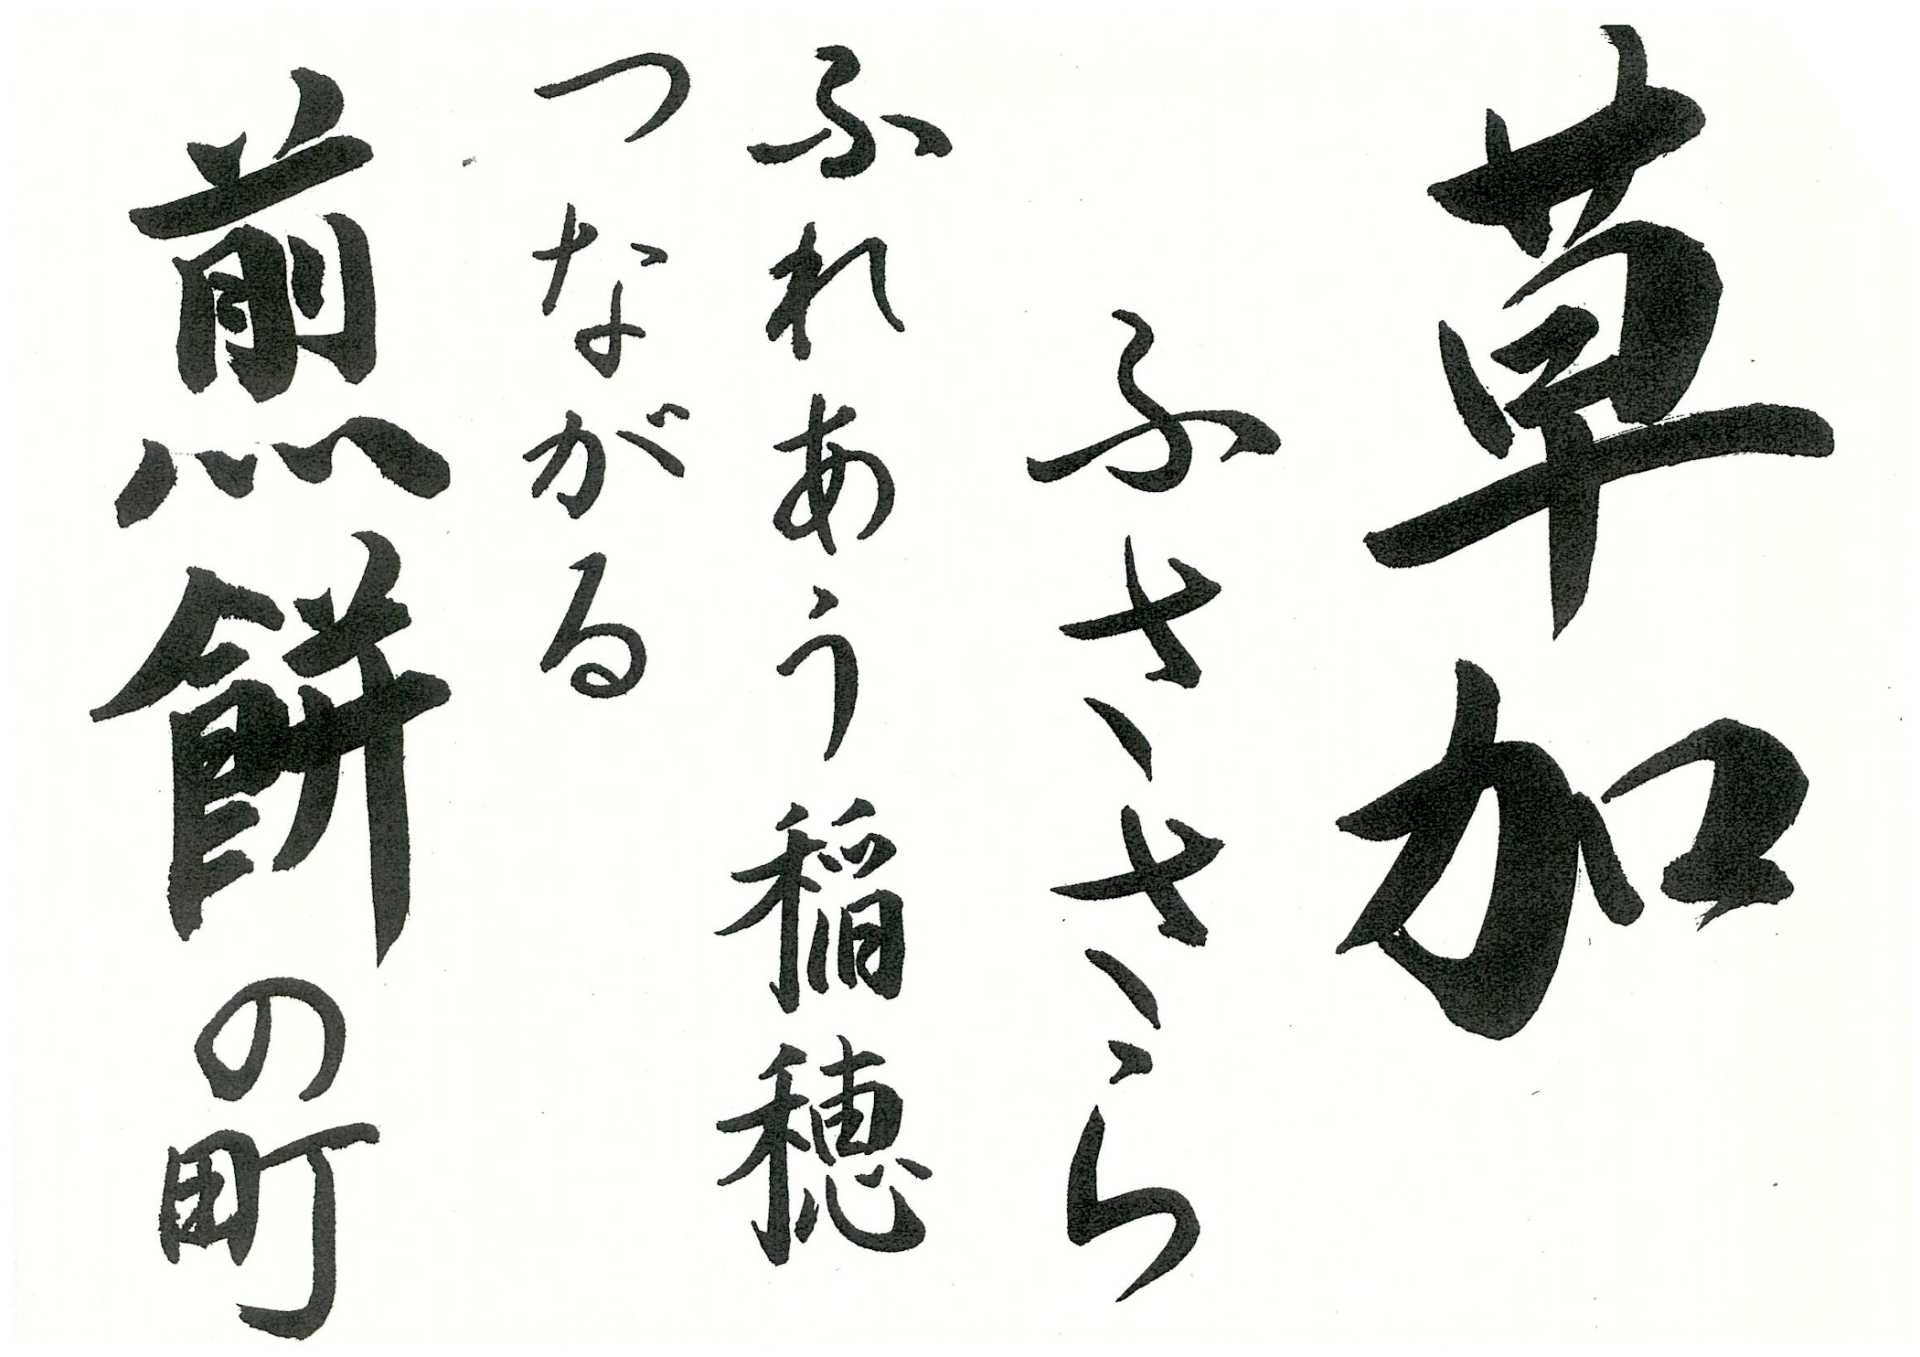 草加
ふさささら
ふれあう稲穂
つながる
煎餅の町